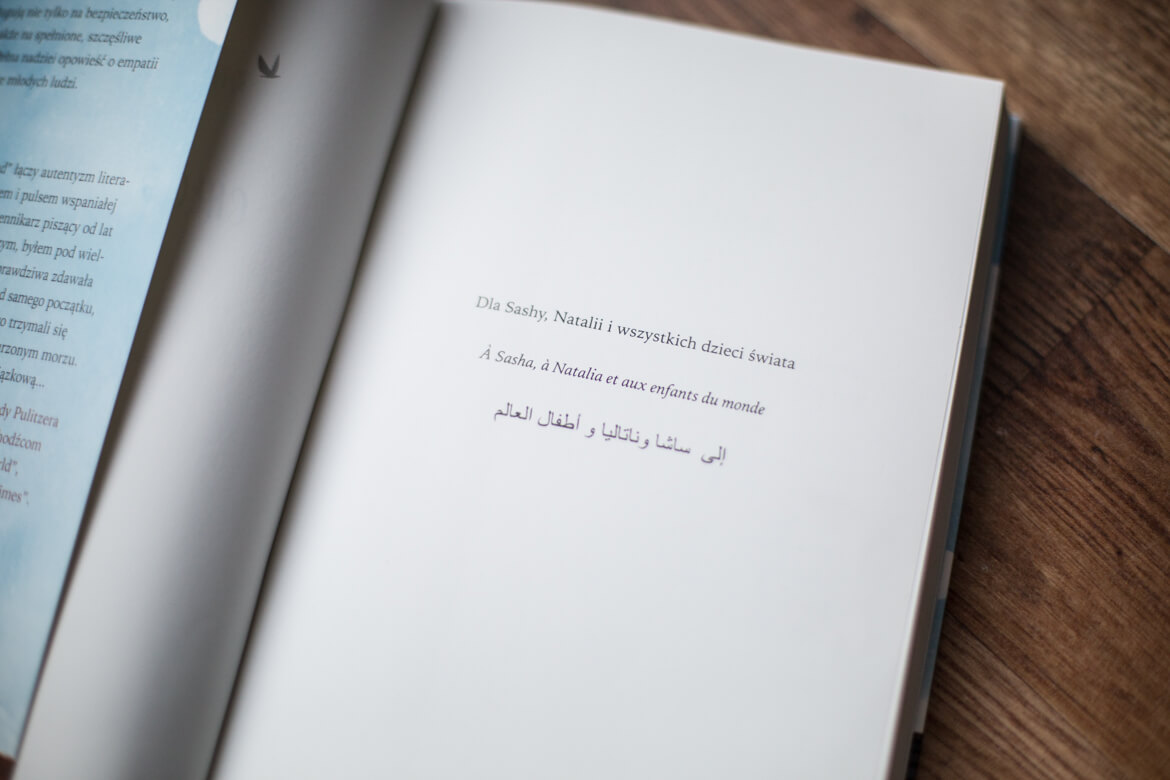 nie tylko na bezpieczeństwo,
na spełnione, szczęśliwe
nadziei opowieść o empatii
młodych ludzi.
łączy autentyzm litera-
i pulsem wspaniałej
piszący od lat
byłem pod wiel-
zdawała
samego początku,
trzymali się
morzu.
Pulitzera
Dla Sashy, Natalii i wszystkich dzieci świata
À Sasha, à Natalia et aux enfants du monde
إلى ساشا وناتاليا و أطفال العالم